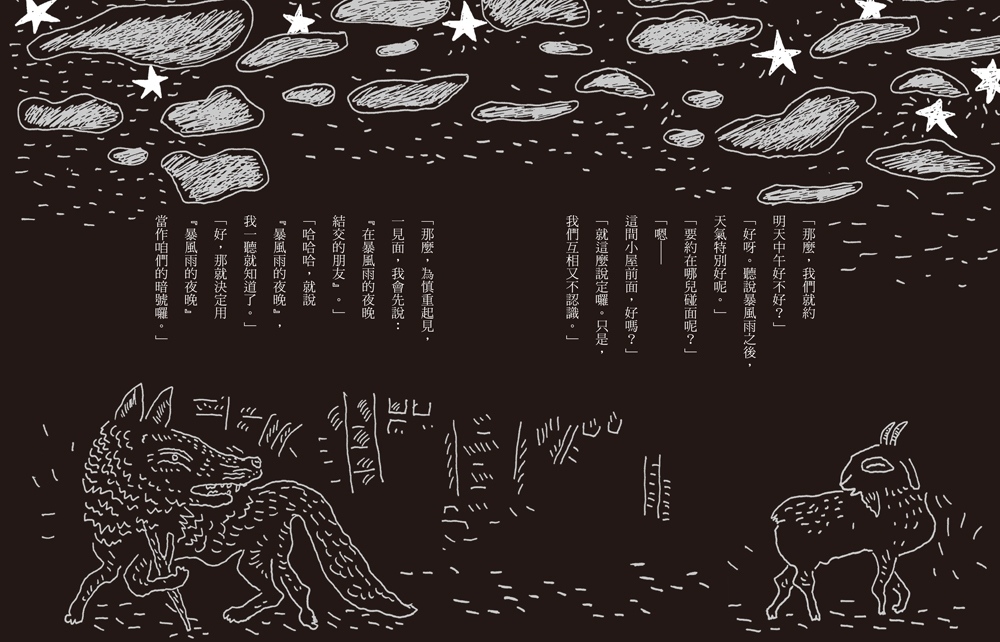 「那麼，我們就約
明天中午好不好？」
「好呀。聽說暴風雨之後，
天氣特別好呢。」
「要約在哪兒碰面呢？」
「嗯——
這間小屋前面，好嗎？」
「就這麼說定囉。只是，
我們互相又不認識。」
「那麼，為慎重起見，
一見面，我會先說：
『在暴風雨的夜晚
結交的朋友』。」
「哈哈哈，就說
『暴風雨的夜晚』，
我一聽就知道了。」
「好，那就決定用
『暴風雨的夜晚』
當作咱們的暗號囉。」